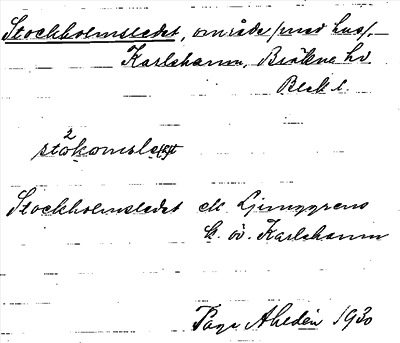 Stockholmsledet, område (med hus), —
Karlshamn, Bräkne hd.
Blek l.
2
Stockholmsledet ell. Ljunggrens
k. öv. Karlshamn
Tage Ahldén 1930